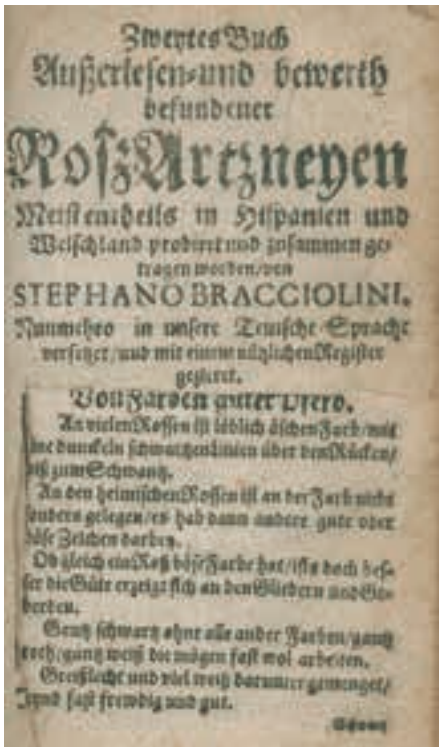 Zweytes Buch
Außerlesen-und bewerth
befundener
Roß-Artzneyen
Meistentheils in Hispanien und
Welschland probirt und zusammen ge-
tragen worden/von
STEPHANO BRACCIOLINI.
Nunmehro in unsere Teutsche Sprache
versetzet/und mit einem nützlichen Register
gezieret.
Von Farben guter Pferd.
An vielen Rossen ist löblich äschen Farb/mit
dunckeln schwartzen Linien über den Rücken/
biß zum Schwantz.
An den heimischen Rossen ist an der Farb nicht
sonders gelegen/es hab dann andere gute oder
böse Zeichen darbey.
Ob gleich ein Roß böse Farbe hat/ists doch bes-
ser die Güte erzeigt sich an den Gliedern und Ge-
berden.
Gantz schwartz ohne alle ander Farben/gantz
roth/gantz weiß die mögen fast wol arbeiten.
und viel weiß darunter gemenget/
sind fast frewdig und gut.